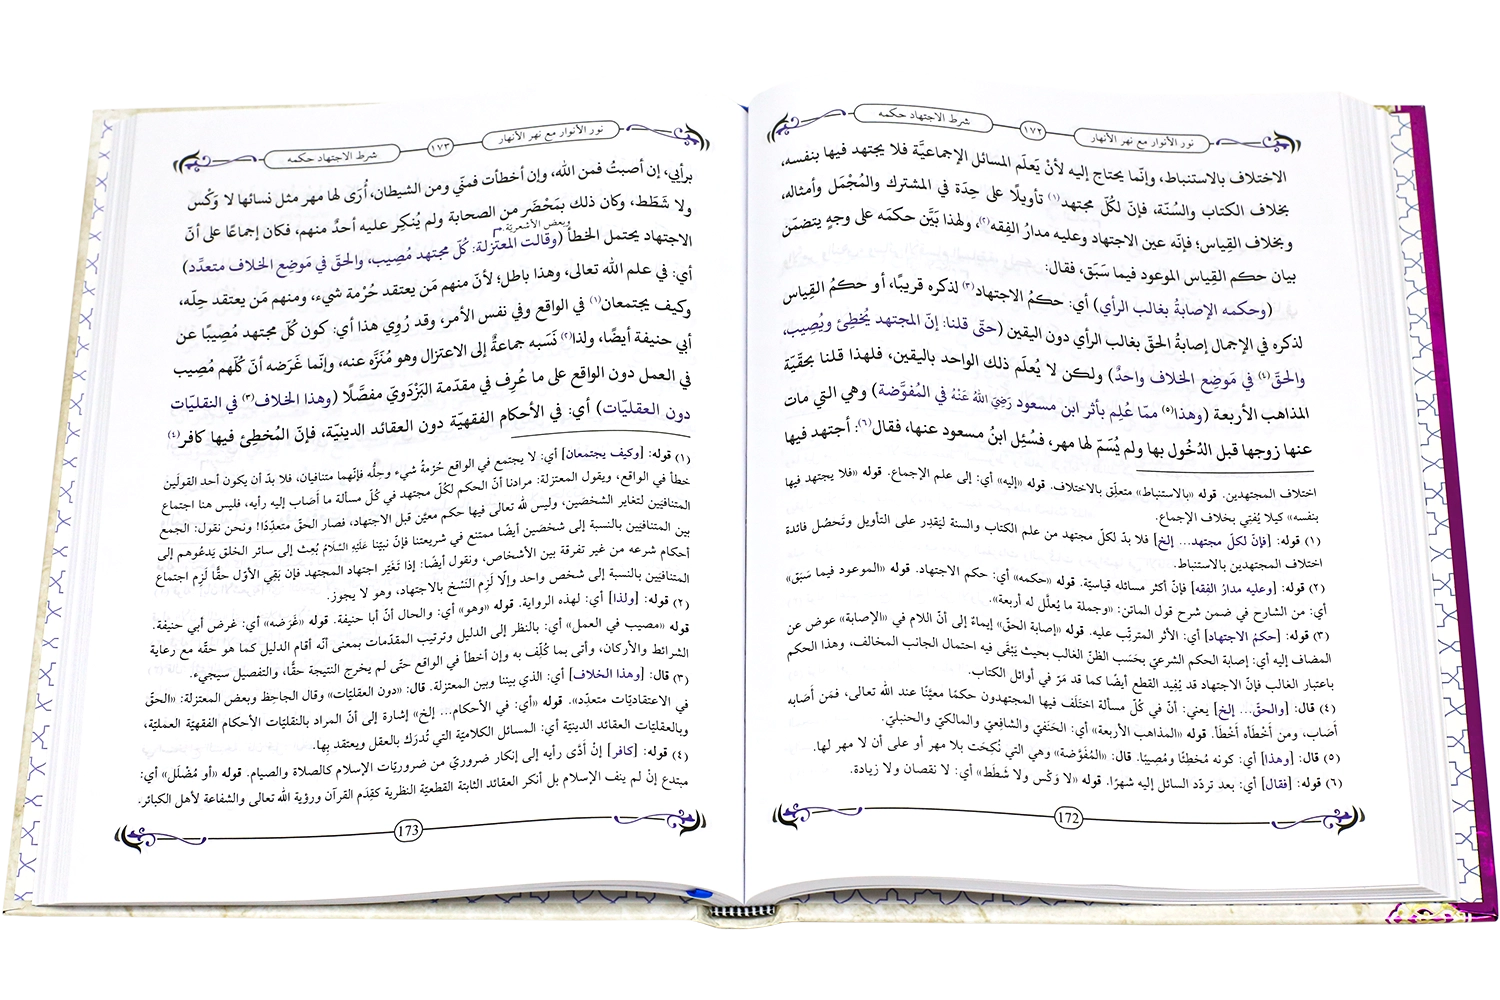 نور الأنوار مع نهر الأنهار
١٧٢
شرط الاجتهاد حكمه
الاختلاف بالاستنباط، وإنّما يحتاج إليه لأنْ يَعلَم المسائل الإجماعيَّة فلا يجتهد فيها بنفسه،
بخلاف الكتاب والسُنّة، فإنّ لكُلّ مجتهد(١) تأويلًا على حِدَة في المشترك والمُجْمَل وأمثاله،
وبخلاف القِياس؛ فإنّه عين الاجتهاد وعليه مدارُ الفِقه(٢)، ولهذا بَيَّن حكمَه على وجهٍ يتضمّن
بيان حكم القِياس الموعود فيما سَبَق، فقال:
(وحكمه الإصابةُ بغالب الرأي) أي: حكمُ الاجتهاد(٣) لذكره قريبًا، أو حكمُ القِياس
لذكره في الإجمال إصابةُ الحقّ بغالب الرأي دون اليقين (حتّى قلنا: إنّ المجتهد يُخطِئ ويُصِيب،
والحقّ(٤) في مَوضِع الخلاف واحدٌ) ولكن لا يُعلَم ذلك الواحد باليقين، فلهذا قلنا بحقّيّة
المذاهب الأربعة (وهذا(٥) ممّا عُلِم بأثر ابن مسعود رَضِيَ اللهُ عَنْهُ في المُفوَّضة) وهي التي مات
عنها زوجها قبل الدُخُول بها ولم يُسَمّ لها مهر، فسُئِل ابنُ مسعود عنها، فقال(٦): أجتهد فيها
اختلاف المجتهدين. قوله «بالاستنباط» متعلِّق بالاختلاف. قوله «إليه» أي: إلى علم الإجماع. قوله «فلا يجتهد فيها
بنفسه» كيلا يُفتِي بخلاف الإجماع.
(١) قوله: [فإنّ لكلّ مجتهد... إلخ] فلا بدّ لكلّ مجتهد من علم الكتاب والسنة ليَقدِر على التأويل وتَحصُل فائدة
اختلاف المجتهدين بالاستنباط.
(٢) قوله: [وعليه مدارُ الفِقه] فإنّ أكثر مسائله قياسيّة. قوله «حكمه» أي: حكم الاجتهاد. قوله «الموعود فيما سَبَق»
أي: من الشارح في ضمن شرح قول الماتن: «وجملة ما يُعلَّل له أربعة».
(٣) قوله: [حكمُ الاجتهاد] أي: الأثر المترتّب عليه. قوله «إصابة الحقّ» إيماءٌ إلى أنّ اللام في «الإصابة» عوض عن
المضاف إليه أي: إصابة الحكم الشرعيّ بحَسَب الظنّ الغالب بحيث يَبْقَى فيه احتمال الجانب المخالف، وهذا الحكم
باعتبار الغالب فإنّ الاجتهاد قد يُفِيد القطع أيضًا كما قد مَرّ في أوائل الكتاب.
(٤) قال: [والحقّ... إلخ] يعني: أنّ في كُلّ مسألة اختَلَف فيها المجتهدون حكمًا معيَّنًا عند الله تعالى، فمَن أَصَابه
أصَاب، ومن أَخْطَأه أَخْطَأ. قوله «المذاهب الأربعة» أي: الحَنَفيّ والشافِعيّ والمالكيّ والحنبليّ.
(٥) قال: [وهذا] أي: كونه مُخطِئًا ومُصِيبًا. قال: «المُفوَّضة» وهي التي نُكِحَت بلا مهر أو على أن لا مهر لها.
(٦) قوله: [فقال] أي: بعد تردّد السائل إليه شهرًا. قوله «لا وَكْس ولا شَطَط» أي: لا نقصان ولا زيادة.
172
نور الأنوار مع نهر الأنهار
١٧٣
شرط الاجتهاد حكمه
برأيي، إن أصبتُ فمن الله، وإن أخطأت فمنّي ومن الشيطان، أُرَى لها مهر مثل نسائها لا وَكْس
ولا شَطَط، وكان ذلك بمَحْضَر من الصحابة ولم يُنكِر عليه أحدٌ منهم، فكان إجماعًا على أنّ
الاجتهاد يحتمل الخطأ (وقالت المعتزلة: كُلّ مجتهد مُصِيب، والحقّ في مَوضِع الخلاف متعدِّد)
وبعض الأشعريّة.
أي: في علم الله تعالى، وهذا باطل؛ لأنّ منهم مَن يعتقد حُرْمة شيء، ومنهم مَن يعتقد حِلّه،
وكيف يجتمعان(١) في الواقع وفي نفس الأمر، وقد رُوِي هذا أي: كون كُلّ مجتهد مُصِيبًا عن
أبي حنيفة أيضًا، ولذا(٢) نَسَبه جماعةٌ إلى الاعتزال وهو مُنَزَّه عنه، وإنّما غَرَضه أنّ كُلّهم مُصِيب
في العمل دون الواقع على ما عُرِف في مقدّمة البَزْدَوِيّ مفصَّلًا (وهذا الخلاف(٣) في النقليّات
دون العقليّات) أي: في الأحكام الفقهيّة دون العقائد الدينيّة، فإنّ المُخطِئ فيها كافر(٤)
(١) قوله: [وكيف يجتمعان] أي: لا يجتمع في الواقع حُرْمةُ شيء وحِلُّه فإنّهما متنافيان، فلا بدّ أن يكون أحد القولَين
خطأ في الواقع، ويقول المعتزلة: مرادنا أنّ الحكم لكُلّ مجتهد في كُلّ مسألة ما أَصَاب إليه رأيه، فليس هنا اجتماع
المتنافيَين لتغاير الشخصَين، وليس لله تعالى فيها حكم معيَّن قبل الاجتهاد، فصار الحقّ متعدِّدًا! ونحن نقول: الجمع
بين المتنافيَين بالنسبة إلى شخصَين أيضًا ممتنع في شريعتنا فإنّ نبيّنا عَلَيْهِ السَّلَامُ بُعِثَ إلى سائر الخلق يَدعُوهم إلى
أحكام شرعه من غير تفرقة بين الأشخاص، ونقول أيضًا: إذا تَغَيَّر اجتهاد المجتهد فإن بَقِي الأوّل حقًّا لَزِم اجتماع
المتنافيَين بالنسبة إلى شخص واحد وإلّا لَزِم النَسْخ بالاجتهاد، وهو لا يجوز.
(٢) قوله: [ولذا] أي: لهذه الرواية. قوله «وهو» أي: والحال أنّ أبا حنيفة. قوله «غَرَضه» أي: غرض أبي حنيفة.
قوله «مصيب في العمل» أي: بالنظر إلى الدليل وترتيب المقدّمات بمعنى أنّه أقام الدليل كما هو حقّه مع رعاية
الشرائط والأركان، وأتى بما كُلِّف به وإن أخطأ في الواقع حتّى لم يخرج النتيجة حقًّا، والتفصيل سيجيء.
(٣) قال: [وهذا الخلاف] أي: الذي بيننا وبين المعتزلة. قال: «دون العقليّات» وقال الجاحِظ وبعض المعتزلة: «الحقّ
في الاعتقاديّات متعدِّد». قوله «أي: في الأحكام... إلخ» إشارة إلى أنّ المراد بالنقليّات الأحكام الفقهيّة العمليّة،
وبالعقليّات العقائد الدينيّة أي: المسائل الكلاميّة التي تُدرَك بالعقل ويعتقد بها.
(٤) قوله: [كافر] إنْ أَدَّى رأيه إلى إنكار ضروريّ من ضروريّات الإسلام كالصلاة والصيام. قوله «أو مُضلَّل» أي:
مبتدع إنْ لم ينف الإسلام بل أنكر العقائد الثابتة القطعيّة النظرية كقِدَم القرآن ورؤية الله تعالى والشفاعة لأهل الكبائر.
173